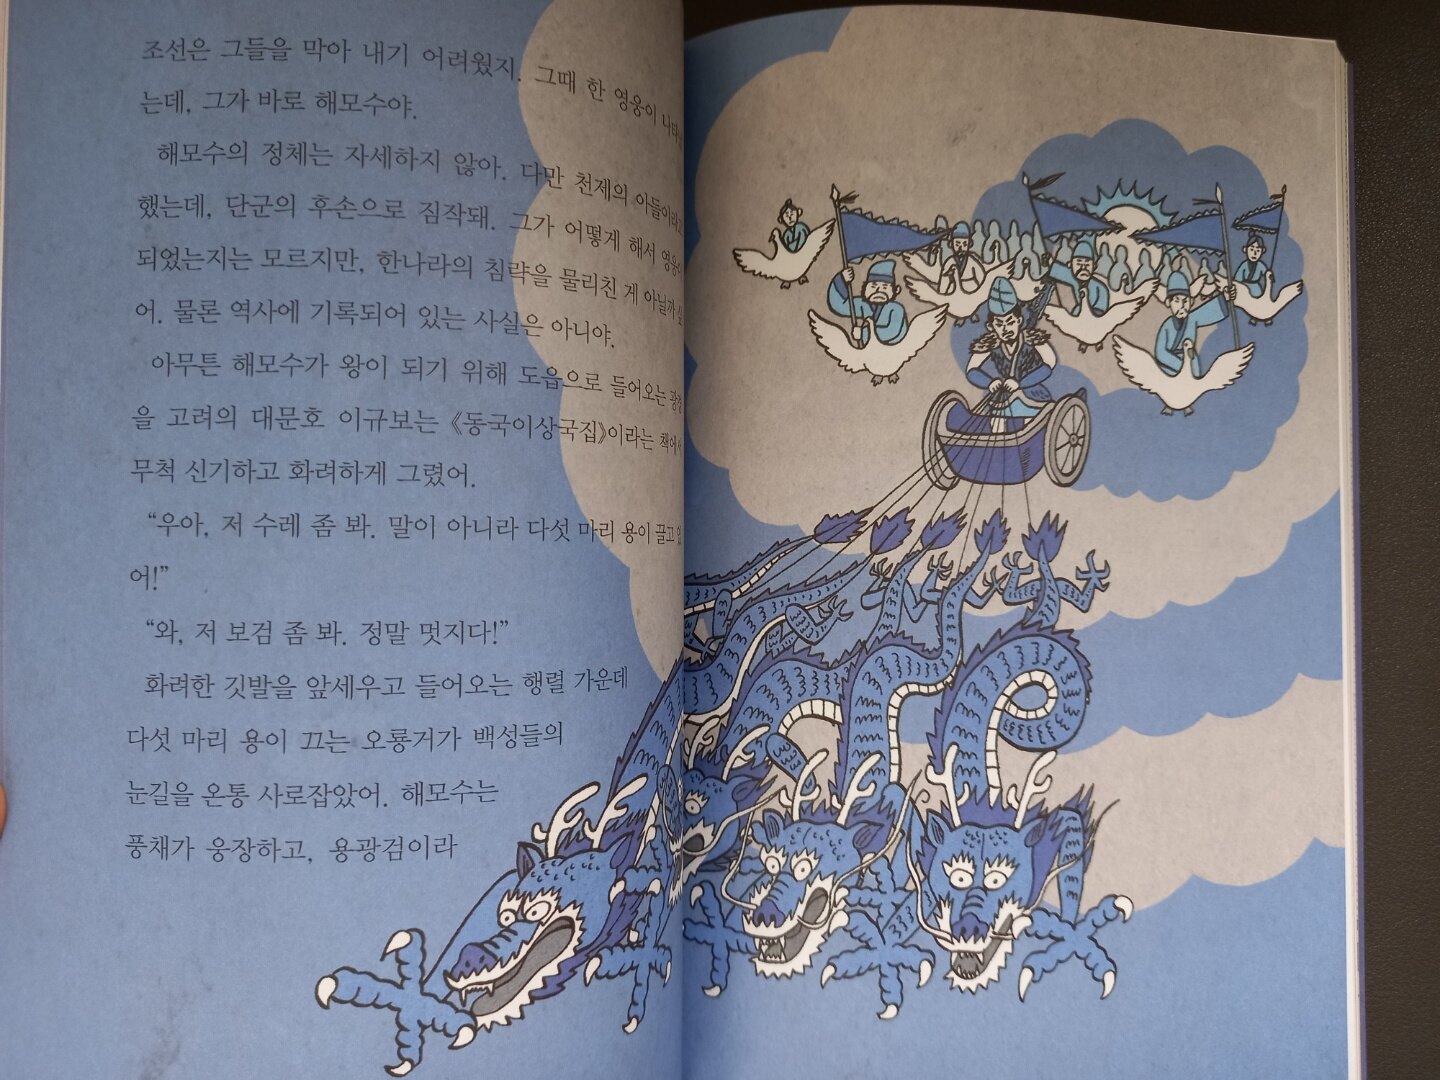 조선은 그들을 막아 내기 어려웠지. 그때 한 영웅이
는데, 그가 바로 해모수야.
해모수의 정체는 자세하지 않아. 다만 천제의 아들이라고
했는데, 단군의 후손으로 짐작돼. 그가 어떻게 해서 영웅이
되었는지는 모르지만, 한나라의 침략을 물리친 게 아닐까 싶
어. 물론 역사에 기록되어 있는 사실은 아니야.
아무튼 해모수가 왕이 되기 위해 도읍으로 들어오는 광경
을 고려의 대문호 이규보는 《동국이상국집》이라는 책에서
무척 신기하고 화려하게 그렸어.
“우아, 저 수레 좀 봐. 말이 아니라 다섯 마리 용이 끌고 있
어!”
“와, 저 보검 좀 봐. 정말 멋지다!”
화려한 깃발을 앞세우고 들어오는 행렬 가운데
다섯 마리 용이 끄는 오룡거가 백성들의
눈길을 온통 사로잡았어. 해모수는
풍채가 웅장하고, 용광검이라